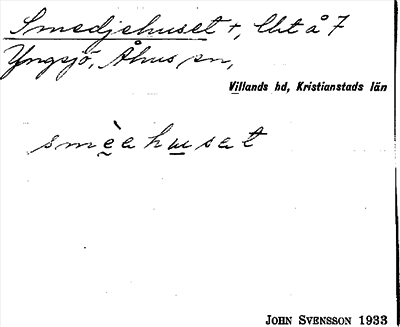 Smedjehuset +, lht å 7
Yngsjö, Åhus sn,
Villands hd, Kristianstads län
smèahusat
John Svensson 1933